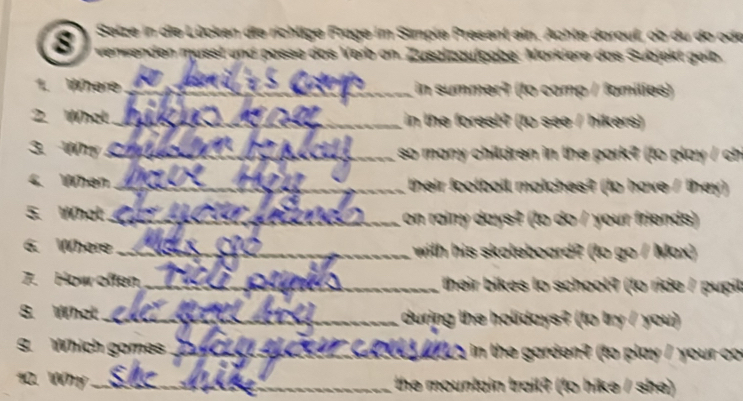 8 Setze in die Lücken die richtige Frage im Simple Present ein. Achte darauf, ob du do ode
verwenden musst und passe das Verb an. Zusatzaufgabe: Markiere das Subjekt gelb.
1. Where to families camp in summer? (to camp // families)
2. What hikers to see in the forest? (to see // hikers)
3. Why children to play so many children in the park? (to play // ch
4. When have they their football matches? (to have // they)
5. What do your friends on rainy days? (to do // your friends)
6. Where Max go with his skateboard? (to go // Max)
7. How often ride pupils their bikes to school? (to ride // pupil
8. What do your try during the holidays? (to try // you)
9. Which games play your cousins in the garden? (to play // your co
10. Why she hike the mountain trail? (to hike // she)